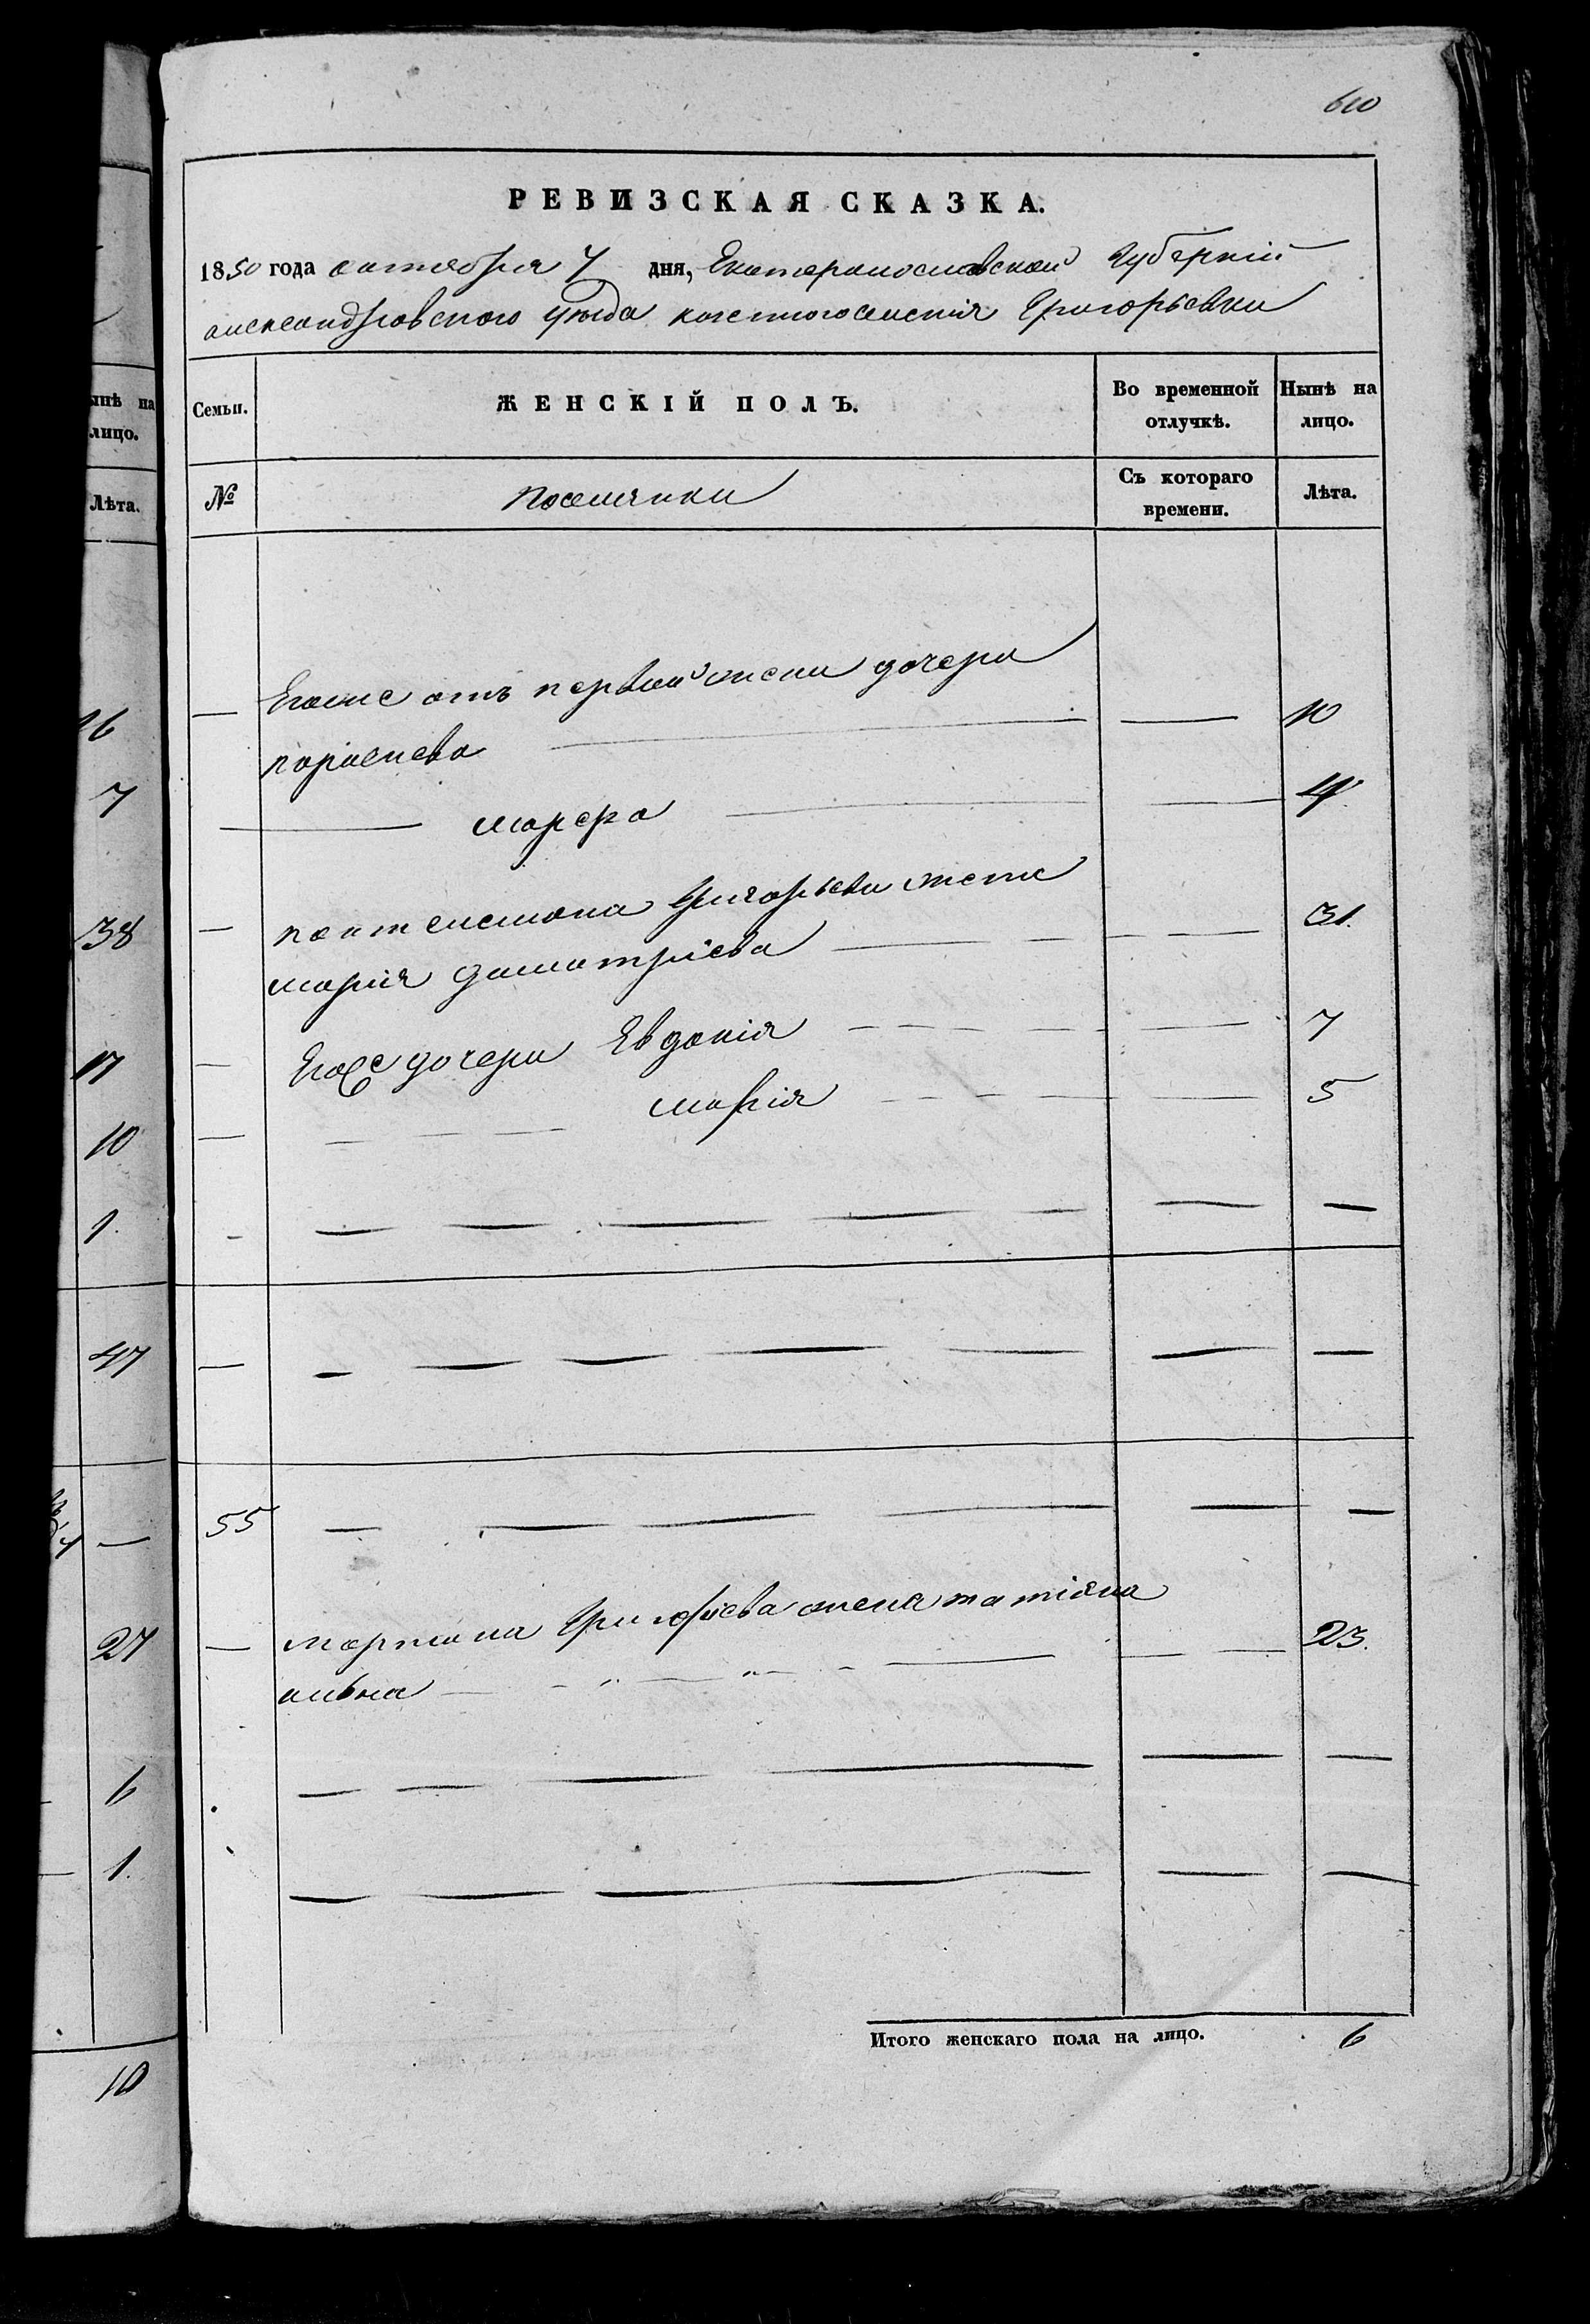 610
РЕВИЗСКАЯ СКАЗКА.
1850 года октября 7 дня, Екатеринославской Губерній
александровского уезда казенногоселенія Григорьевки
Семьи.
ЖЕНСКІЙ ПОЛЪ.
Во временной отлучкѣ.
Нынѣ на лицо.
№
поселянки
Съ котораго времени.
Лѣта.
Егоже отъ первой жены дочери
параскева 10
марфа 4
пантелемона Григорьева жена
марія диматріева 31.
Егоже дочери Евдокія 7
марія 5
55
мартина Григорьева жена татіяна
23.
Итого женскаго пола на лицо. 6
ынѣ на
лицо.
Лѣта.
16
7
38
17
10
1.
47
27
6
1.
10